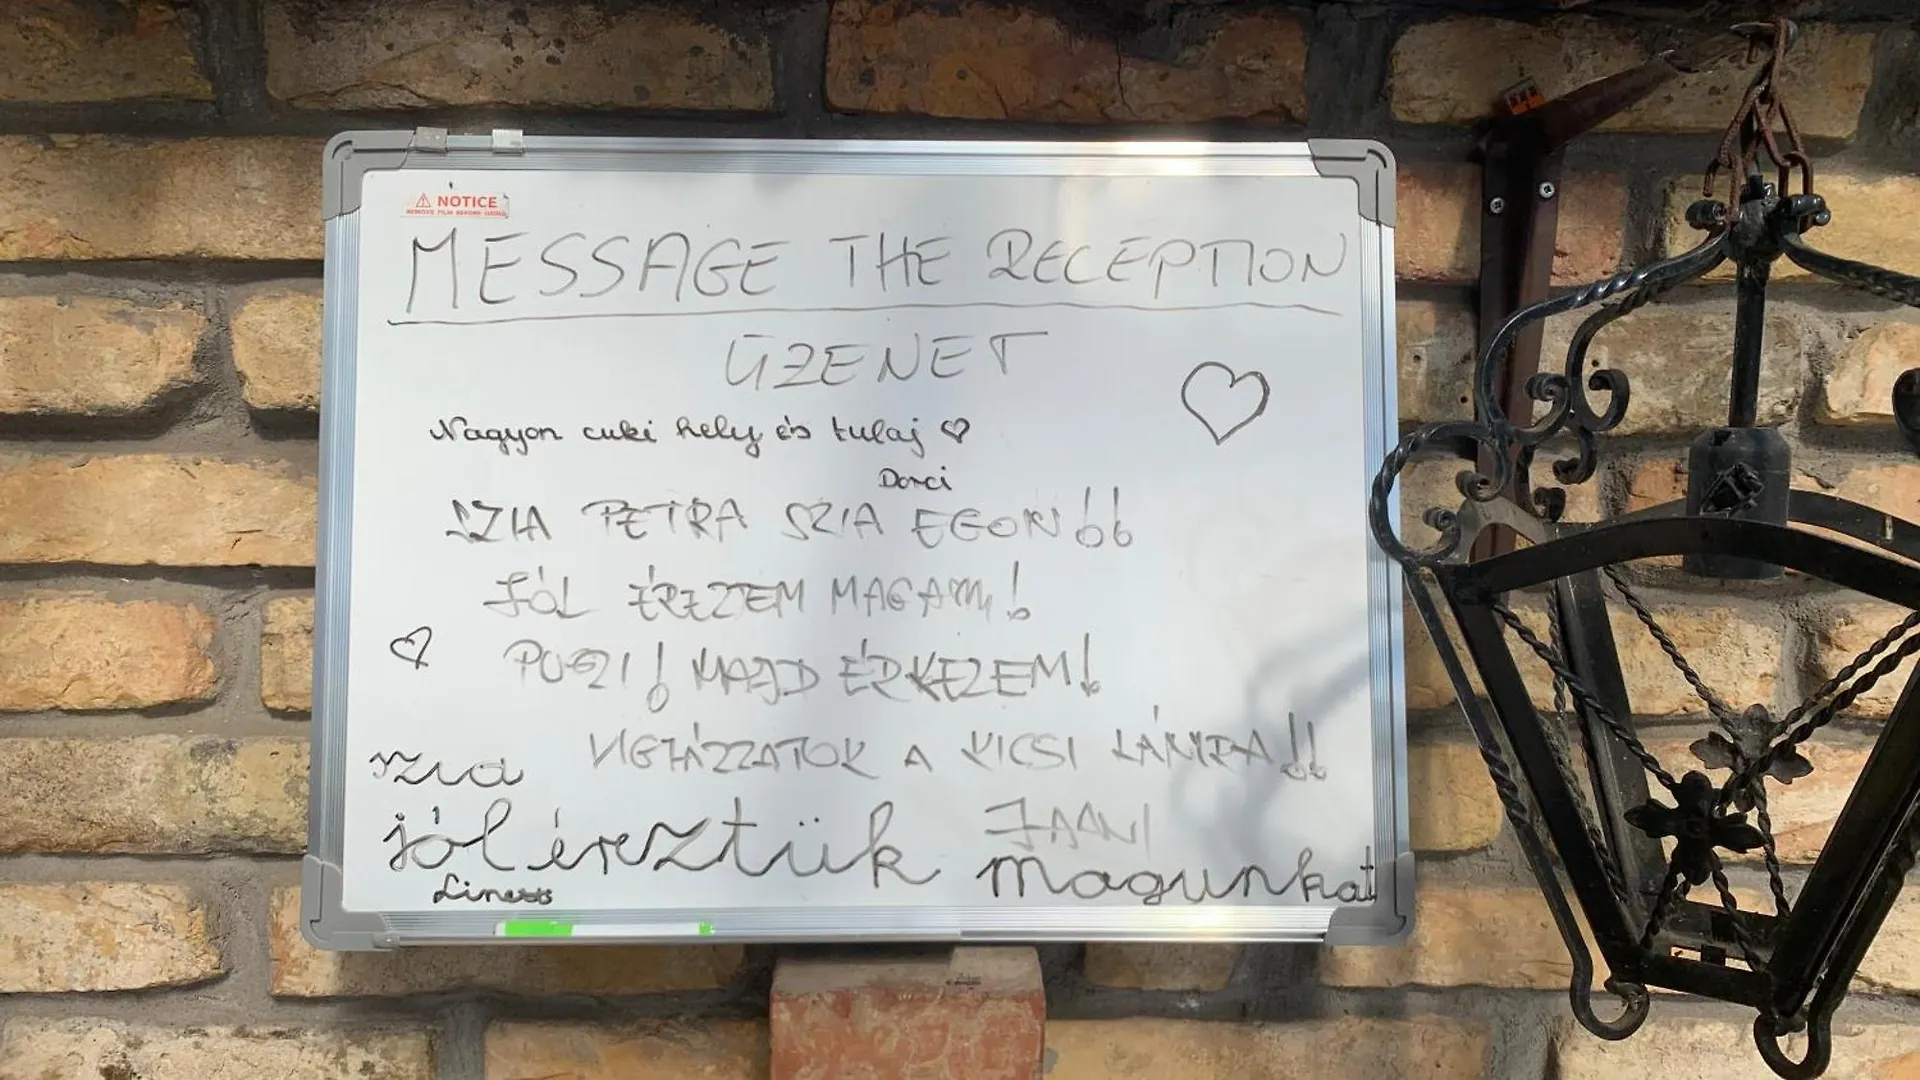 NOTICE
REMOVE FILM BEFORE USING
MESSAGE THE RECEPTION
ÜZENET
Nagyon cuki hely és tulaj
Dorci
SZIA PETRA SZIA EGON!!
JÓL ÉREZTEM MAGAM!
PUSZI! MAJD ÉRKEZEM!
VIGYÁZZATOK A KICSI LÁMPA!!
szia
JAANI
jól éreztük magunkat